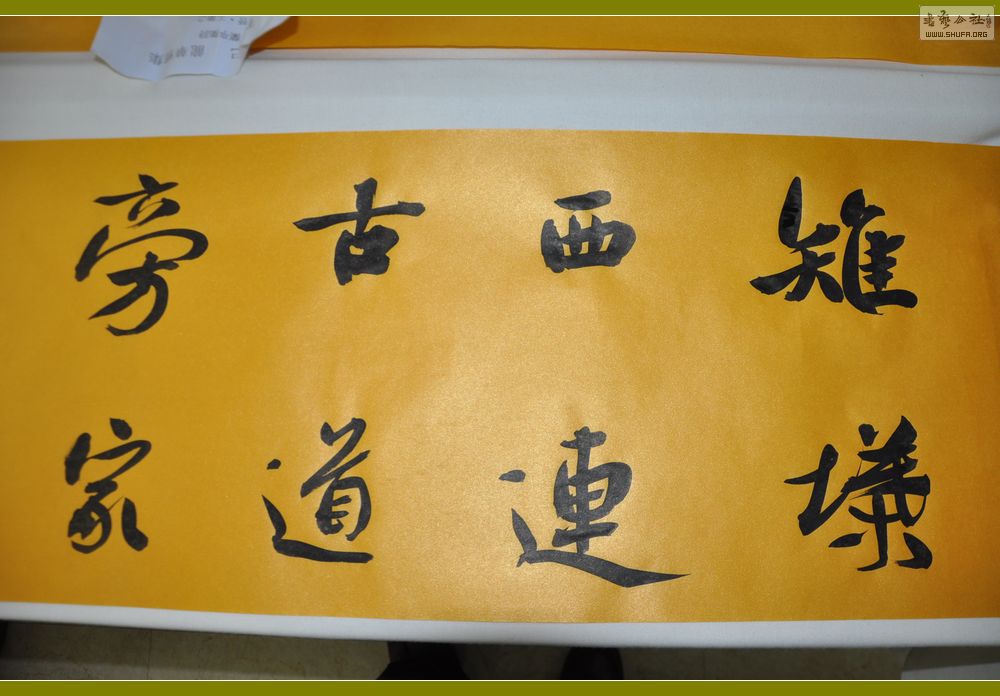 雉堞
西連
古道
旁家
書藝公社
WWW.SHUFA.ORG